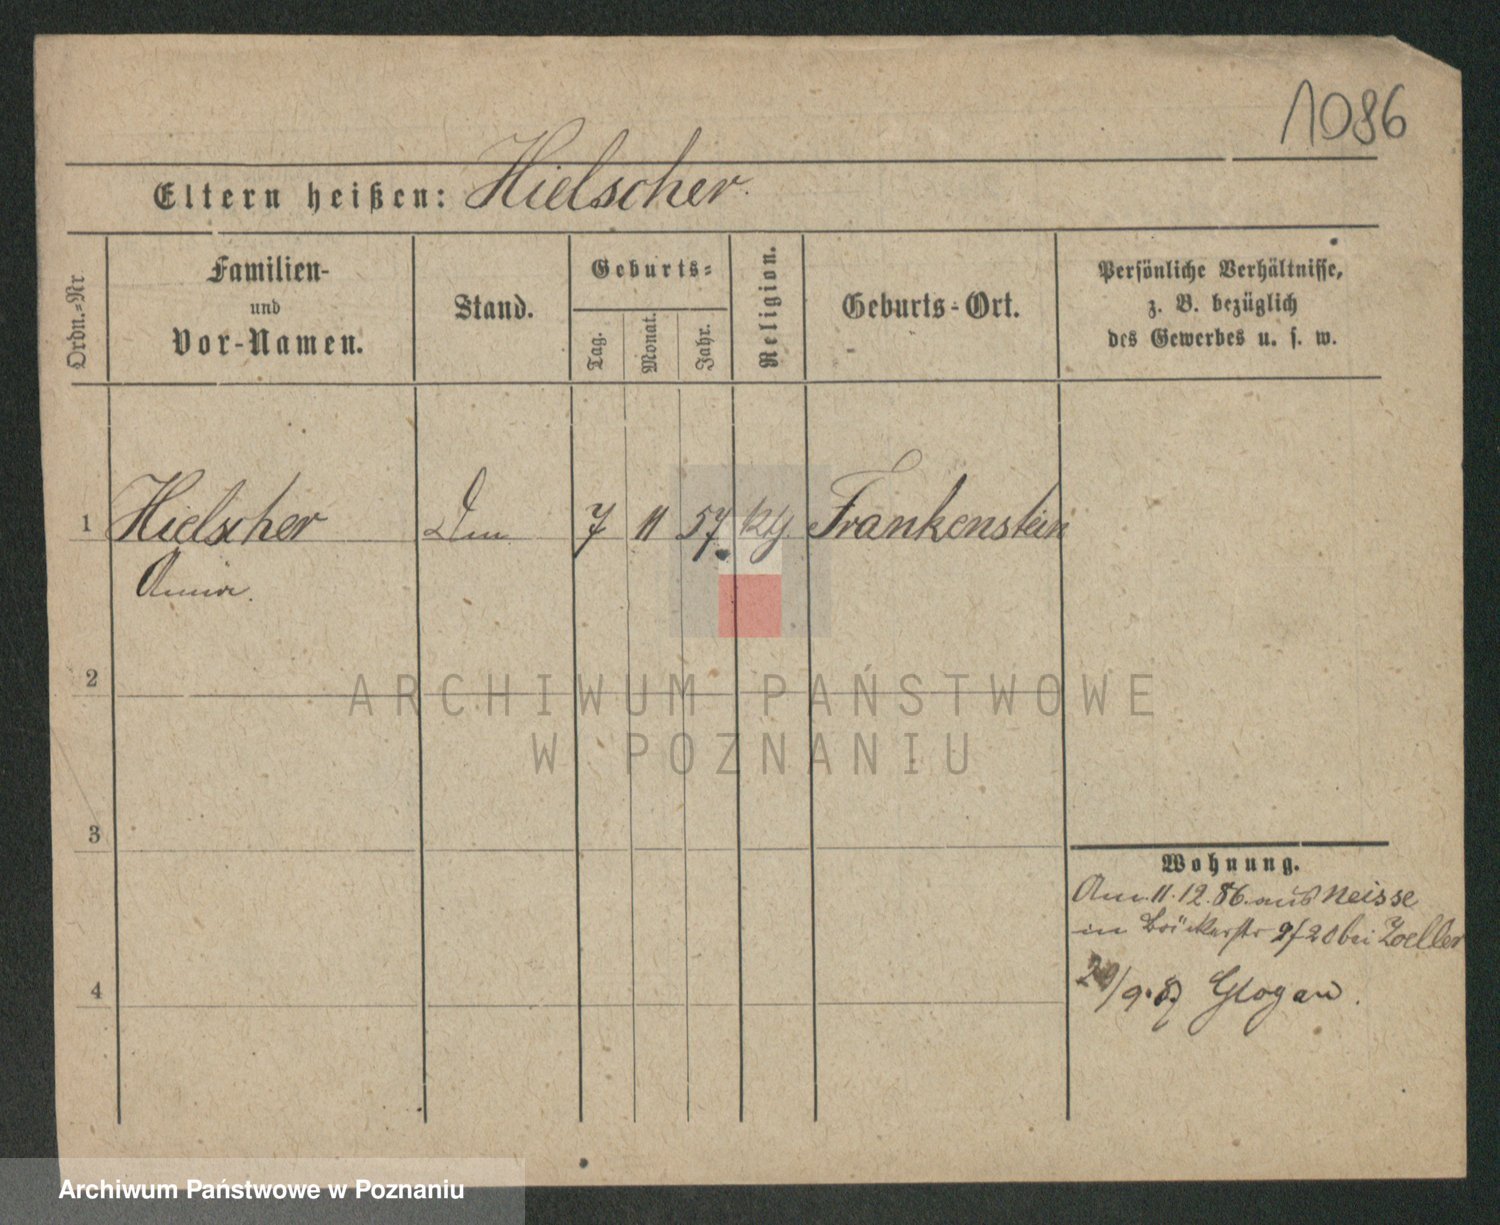 1086
Eltern heißen: Hielscher.
Ordn.-Nr
Familien-
und
Vor-Namen.
Stand.
Geburts-
Tag.
Monat.
Jahr.
Religion.
Geburts-Ort.
Persönliche Verhältnisse,
z. B. bezüglich
des Gewerbes u. s. w.
1 Hielscher 7 11 57 Frankenstein
Anna.
2
3
4
Wohnung.
Am. 11.12.86. aus Neisse
in 2/20 bei Zoeller
9.87 Glogau.
ARCHIWUM PAŃSTWOWE
W POZNANIU
Archiwum Państwowe w Poznaniu